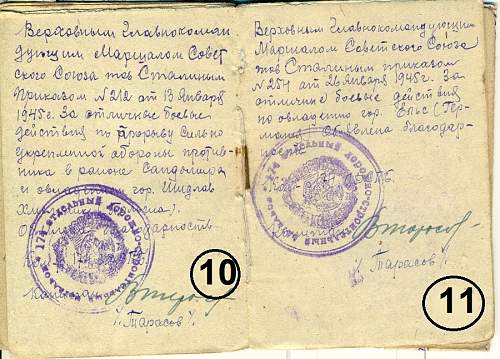 Верховным Главнокоман
дующим Маршалом Совет
ского Союза тов Сталиным
приказом № 212 от 13 января
1945г. За отличные боевые
действия по прорыву сильно
укрепленной обороны против-
ника в районе Сандомира
и овладении гор. Шидлав
174 ОТДЕЛЬНЫЙ ДОРОЖНО-СТРОИТЕЛЬНЫЙ БАТАЛЬОН
/Тарасов/
10
Верховным Главнокомандующим
Маршалом Советского Союза
тов Сталиным приказом
№ 254 от 26 января 1945г. За
отличные боевые действия
по овладению гор. Ельс (Гер-
мания) Объявлена благодар-
174 ОТДЕЛЬНЫЙ ДОРОЖНО-СТРОИТЕЛЬНЫЙ БАТАЛЬОН
/Тарасов/
11